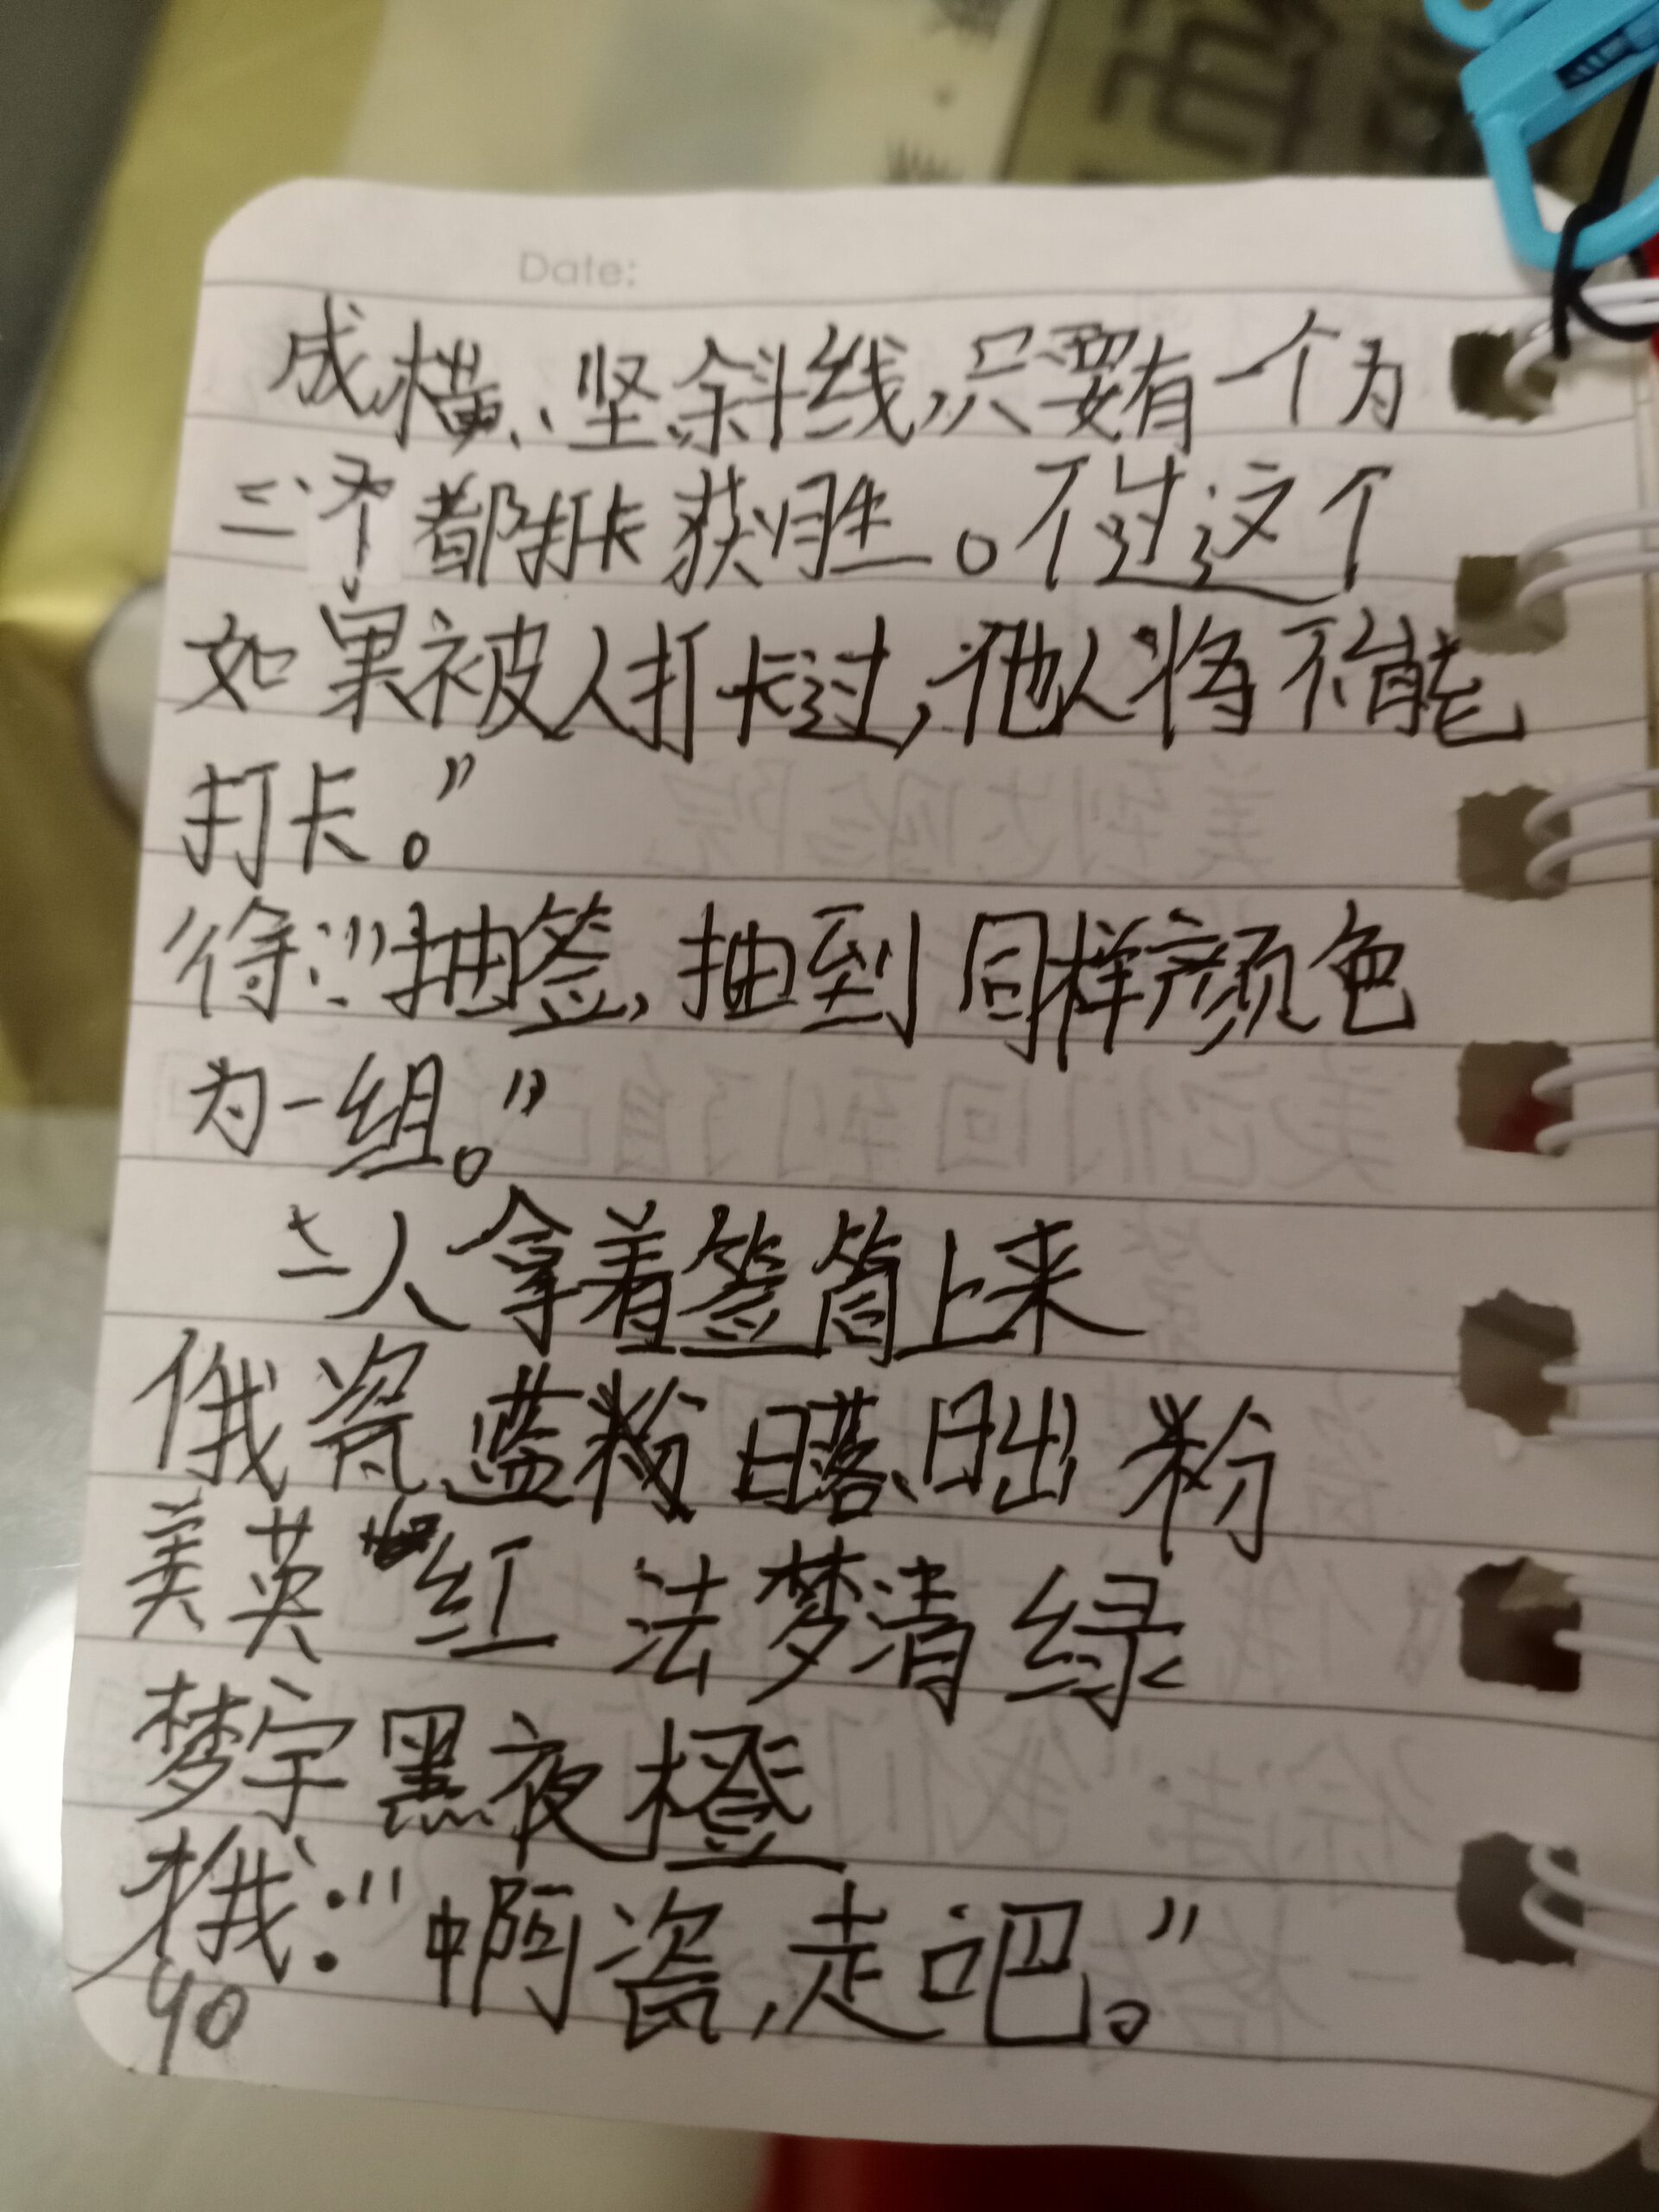 Date:
成横、坚斜线,只要有一个为
三个都打卡获胜。不过这个
如果被人打卡过,他人将不能
打卡。”
徐:“抽签,抽到同样颜色
为一组。”
二人拿着签筒上来
俄瓷蓝粉 日落、日出 粉
美英 红 法梦清 绿
梦宇黑夜橙
俄:“啊瓷,走吧。”
40